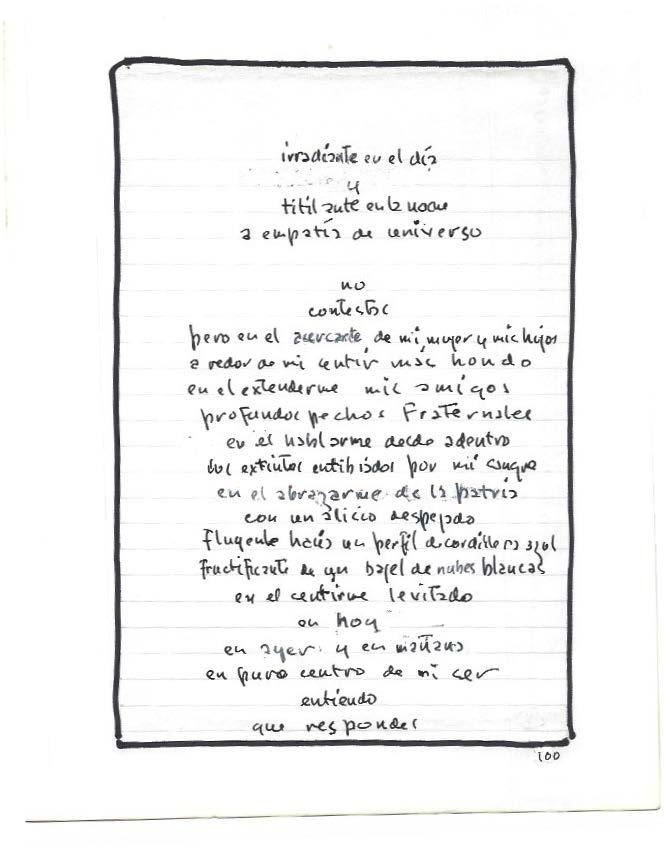 irradiante en el día
y
titilante en la noche
a empatía de universo
no
contestas
pero en el acercarte de mi mujer y mis hijos
a redor de mi sentir más hondo
en el extenderme mis amigos
profundos pechos fraternales
en el hablarme desde adentro
los extintos entibiados por mi sangre
en el abrazarme de la patria
con un alisio despejado
flugente hacia un perfil de cordillera azul
fructificante de un bajel de nubes blancas
en el sentirme levitado
en hoy
en ayer y en mañana
en puro centro de mi ser
entiendo
que respondes
100